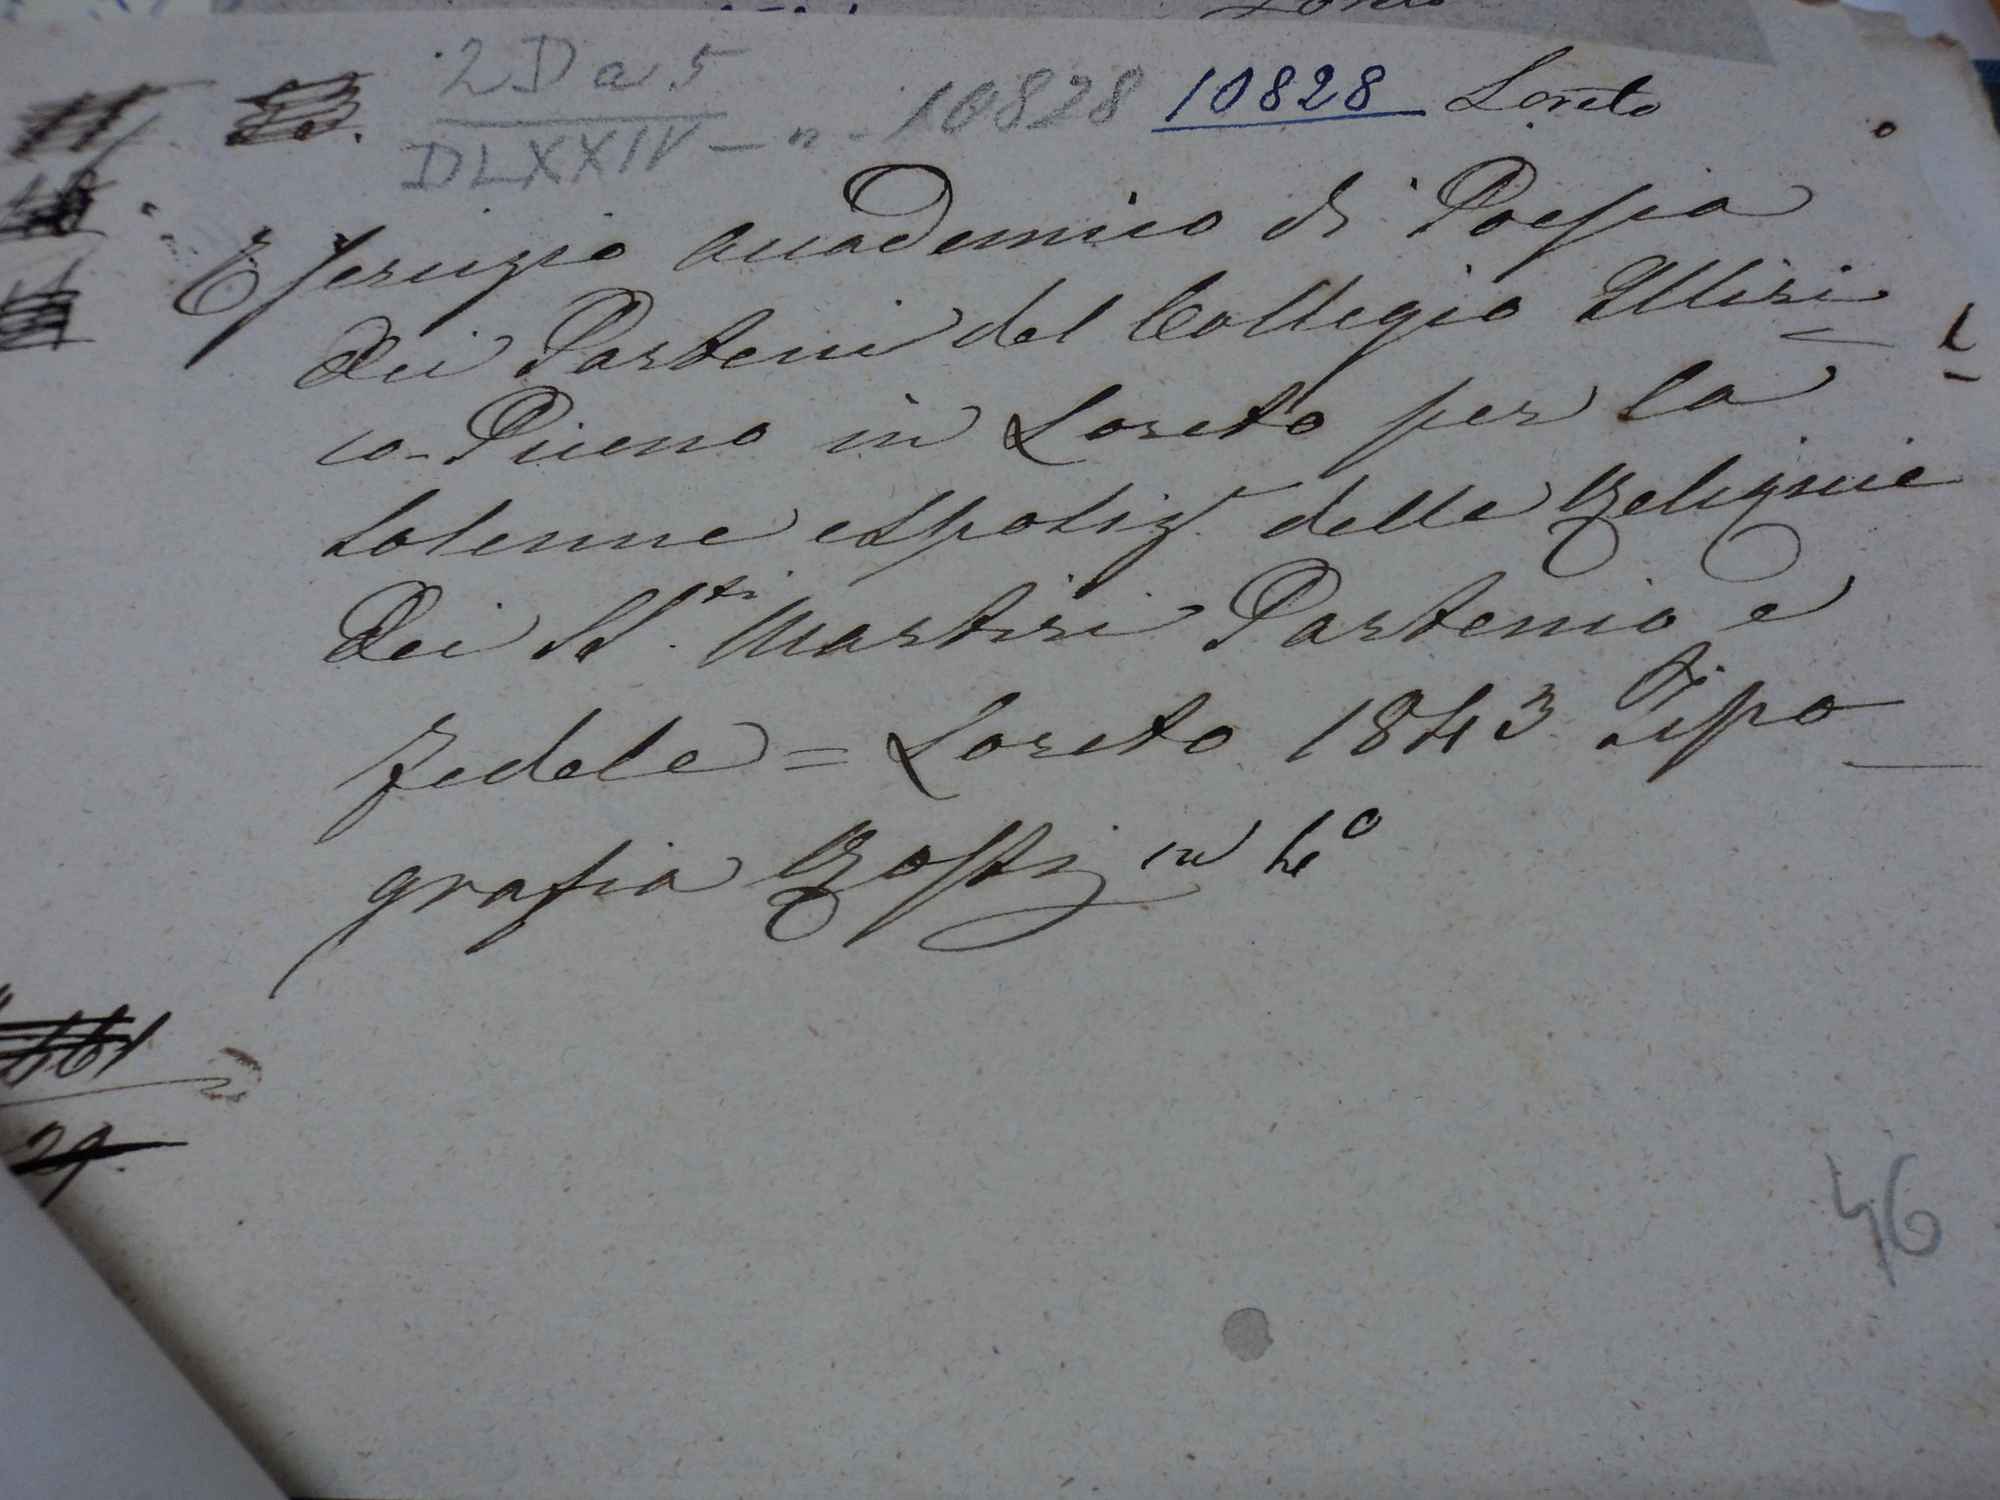 2Da5
DLXXIV - " - 10828 10828 Loreto
Esercizio accademico di Poesia
dei Parteni del Collegio Illiri=
co-Piceno in Loreto per la
solenne esposiz. delle Reliquie
dei SS.ti Martiri Partenio e
Fedele = Loreto 1843 Tipo-
grafia Rossi in 4°
29
46